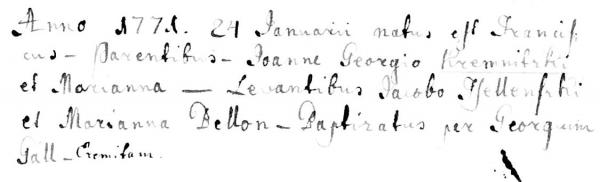 Anno 1771. 24 Januarii natus est Francis,
cus - Parentibus - Joanne Georgio Kremnitzkij
et Marianna — Levantibus Jacobo
et Marianna Bellon - Baptizatus per Georgium
Gall - Eremitam.